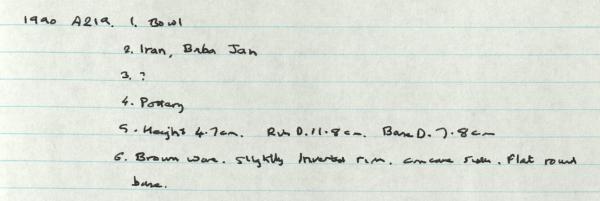 1990 A219. 1. Bowl
2. Iran, Baba Jan
3. ?
4. Pottery
5. Height 4.7cm. Rim D. 11.8cm. Base D. 7.8cm
6. Brown ware. Slightly Inverted rim. concave sides. Flat round
base.